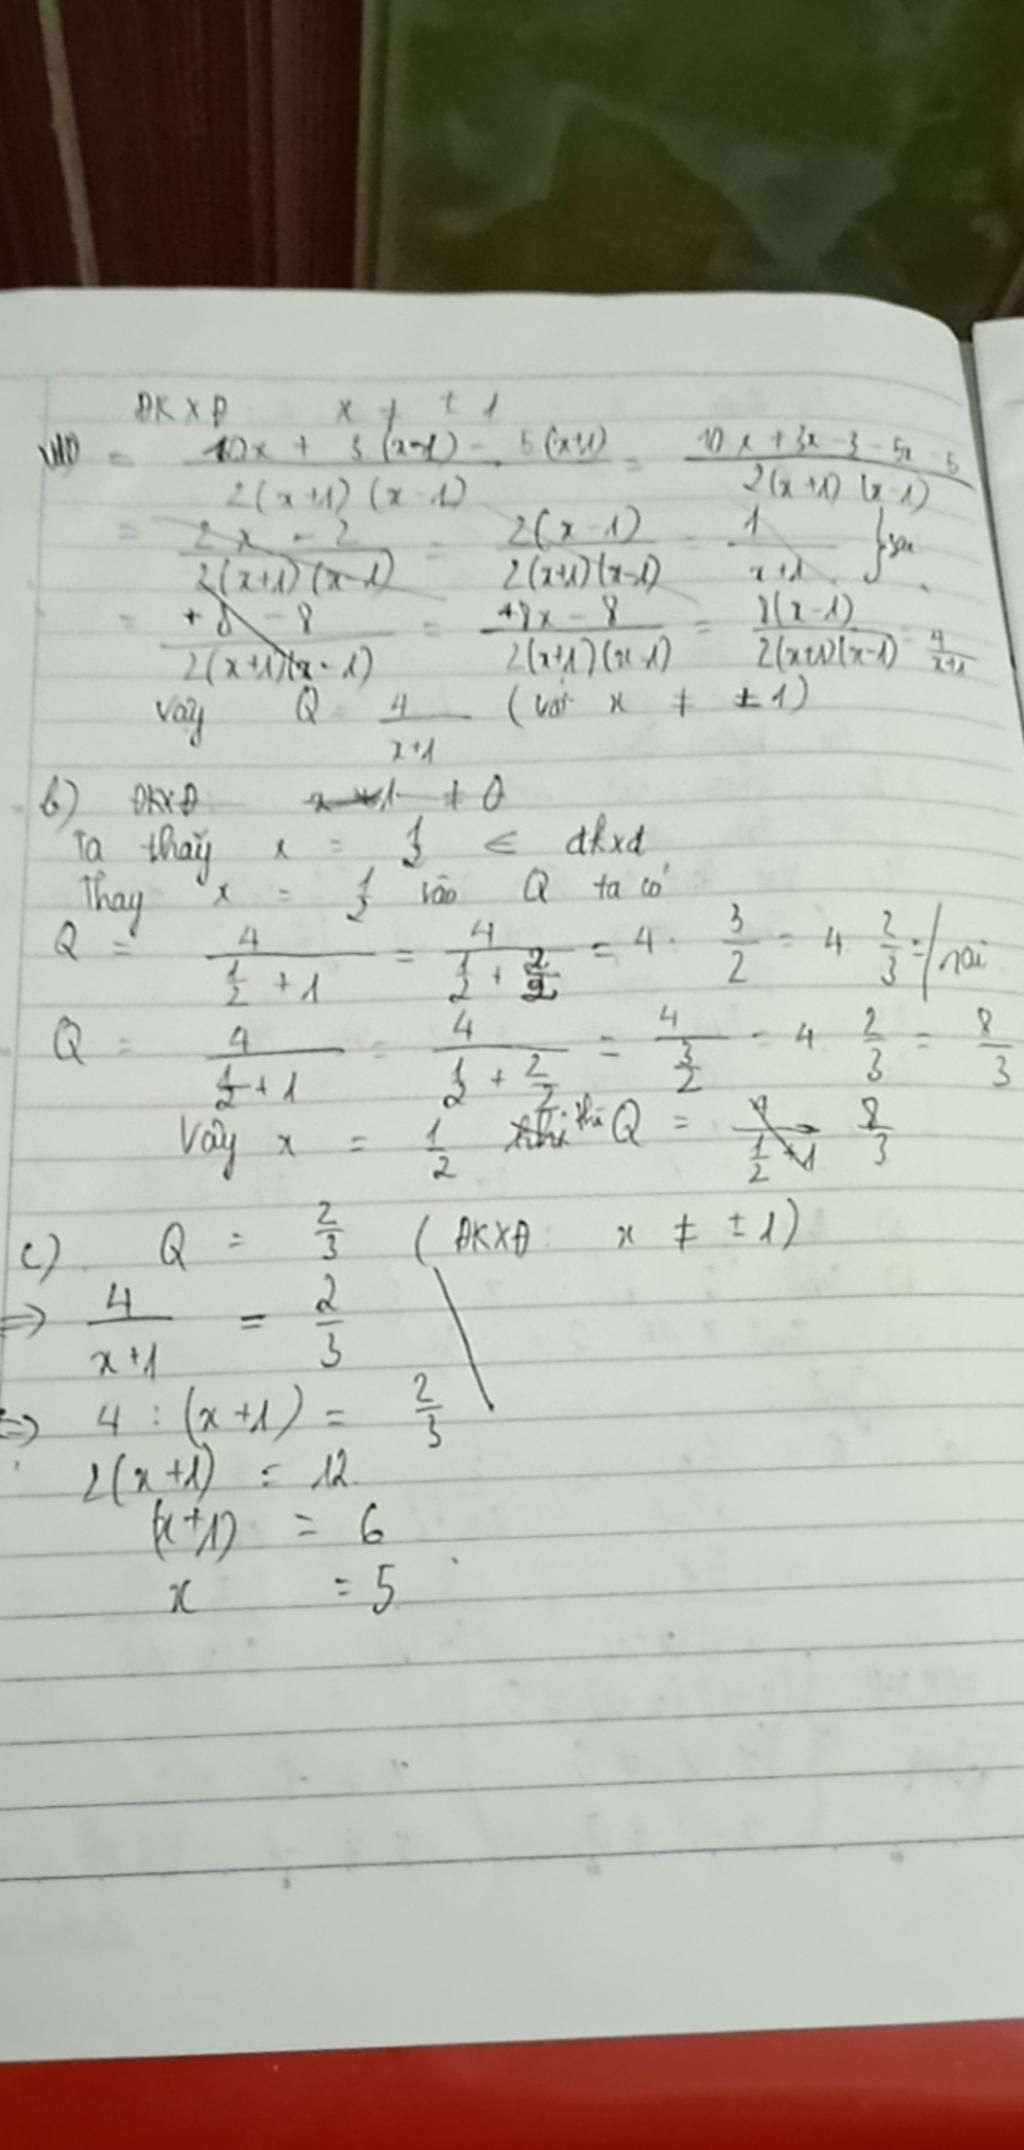 ĐKXĐ x ≠ ± 1
= 10x + 3(x-1) - 5(x+1) / 2(x+1)(x-1) = 10x + 3x - 3 - 5x - 5 / 2(x+1)(x-1)
= 2x - 2 / 2(x+1)(x-1) = 2(x-1) / 2(x+1)(x-1) = 1 / x+1 }
= + 8 - 8 / 2(x+1)(x-1) = +8x - 8 / 2(x+1)(x-1) = 8(x-1) / 2(x+1)(x-1) = 4 / x+1
Vậy Q = 4 / x+1 (với x ≠ ± 1)
b) ĐKXĐ x + 1 ≠ 0
Ta thấy x = 1/2 ∈ đkxđ
Thay x = 1/2 vào Q ta có
Q = 4 / 1/2 + 1 = 4 / 1/2 + 2/2 = 4 . 3/2 = 4 2/3 = / sai
Q = 4 / 1/2 + 1 = 4 / 1/2 + 2/2 = 4 / 3/2 = 4 2/3 = 8/3
Vậy x = 1/2 thì Q = 8/3
c) Q = 2/3 (ĐKXĐ: x ≠ ± 1)
=> 4 / x+1 = 2/3
=> 4 : (x+1) = 2/3
2(x+1) = 12
(x+1) = 6
x = 5